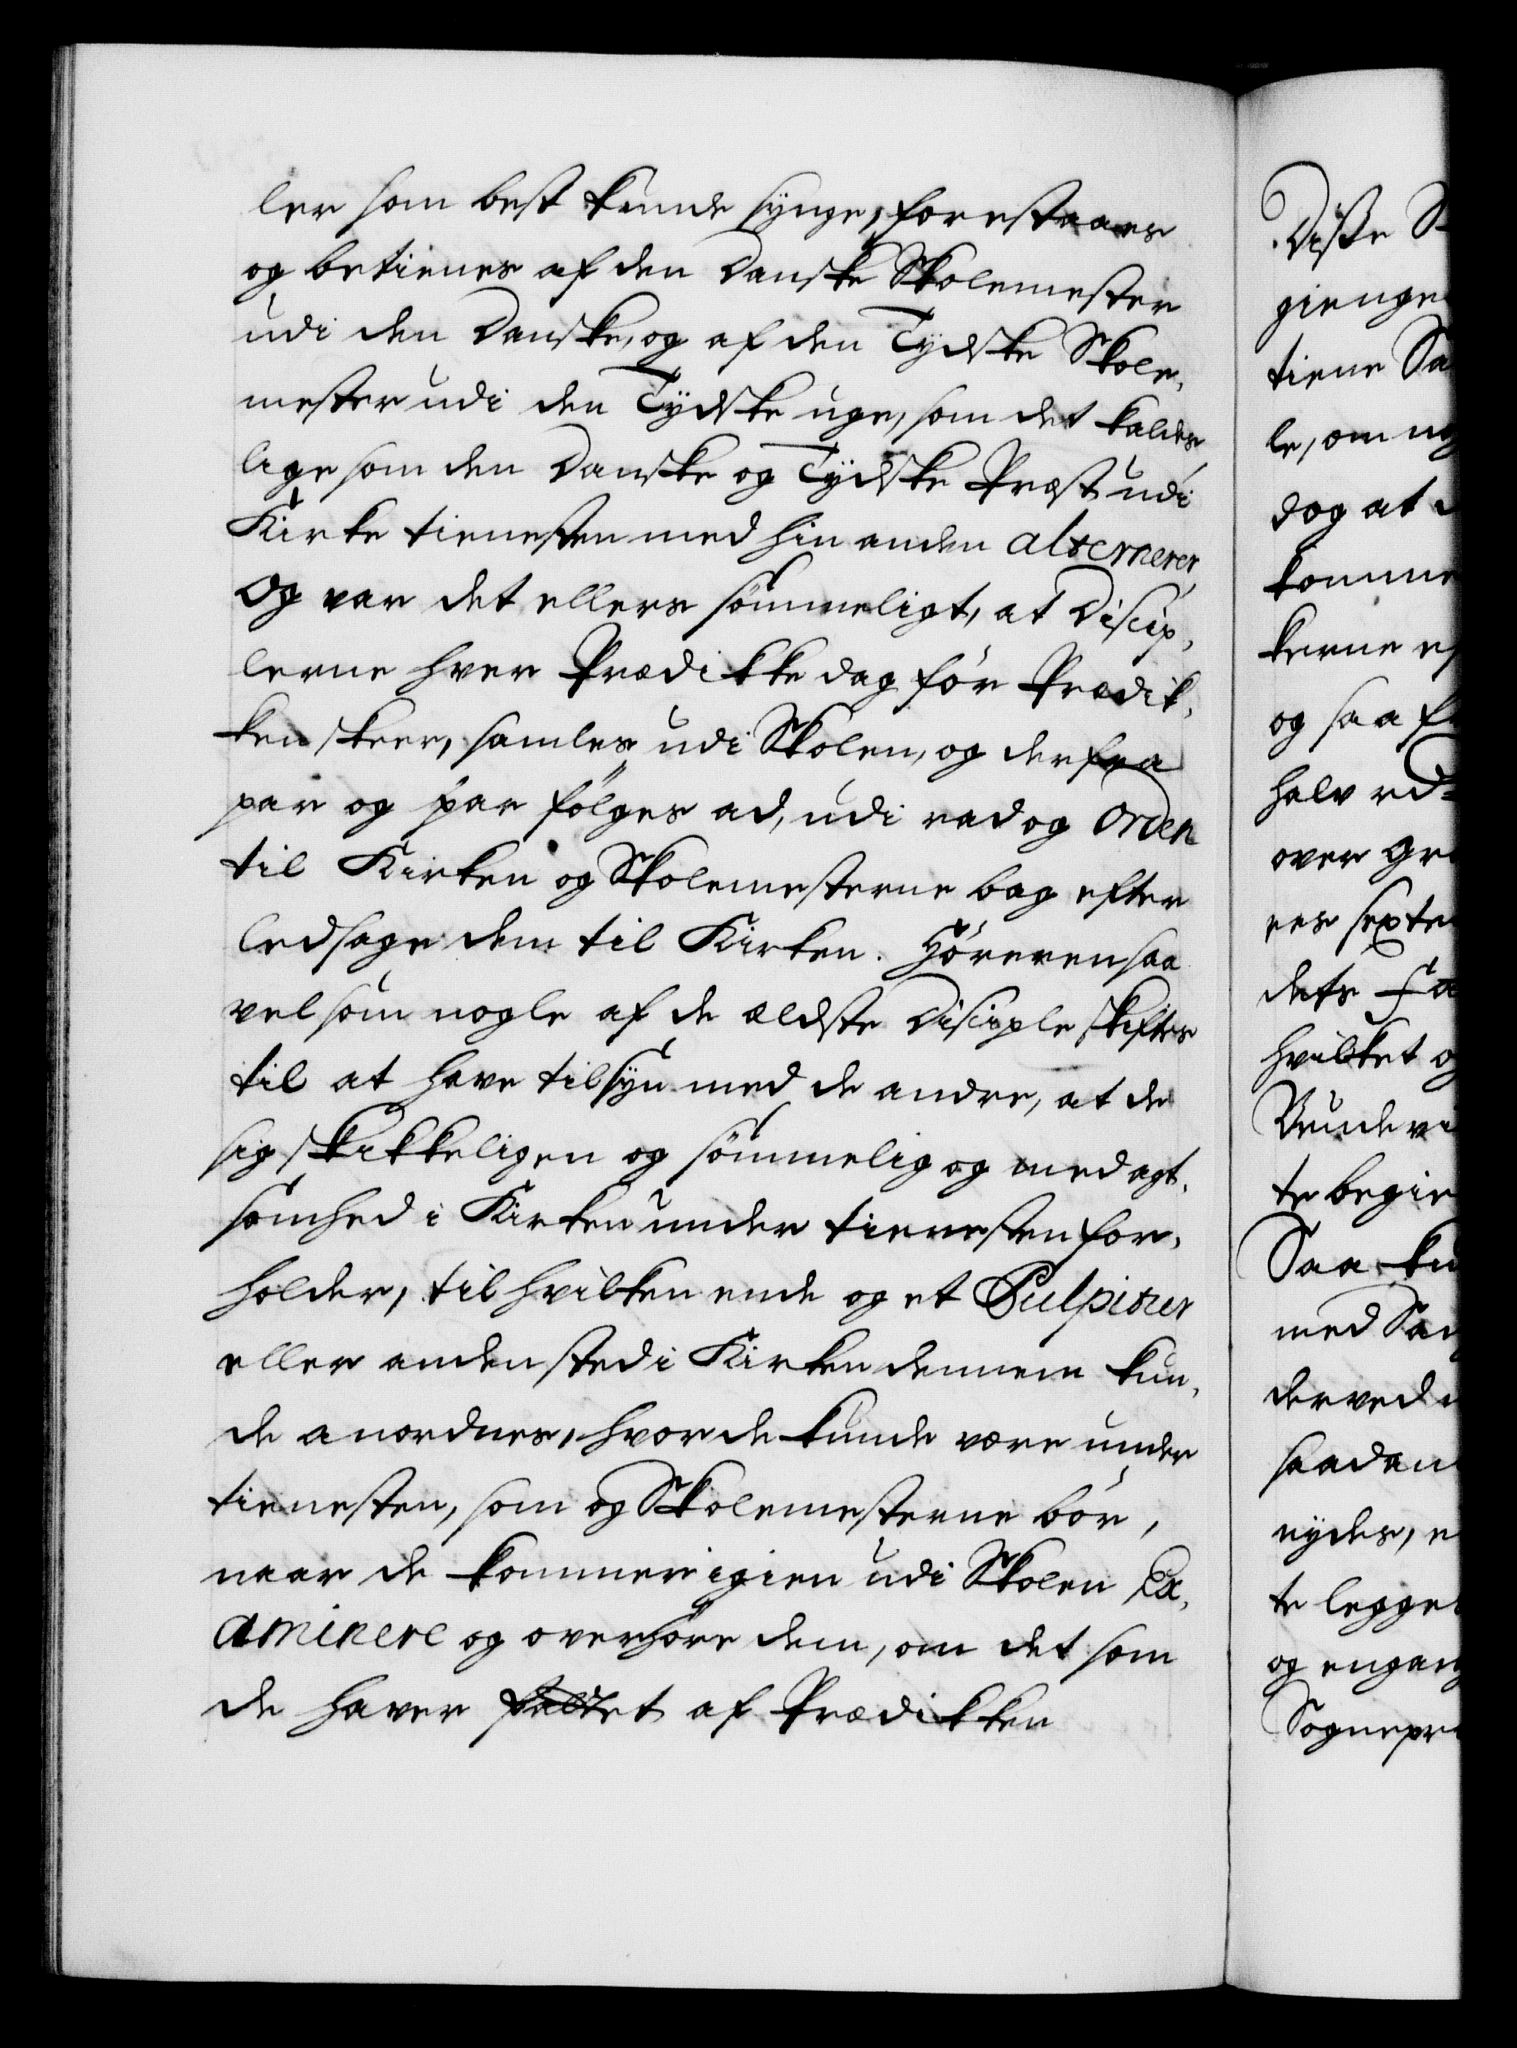 ler som best kunde synge, forestaaes
og betienes af den Danske Skolemester
udi den Danske, og af den Tydske Skole,
mester udi den Tydske uge, som det kaldes,
lige som den Danske og Tydske Præst udi
Kirke tienesten med hin anden alternerer,
Og var det ellers sømmeligt, at Discip,
lerne hver Prædikke dag før Prædik,
ken skeer, samles udi Skolen, og derfra
par og par følges ad, udi rad og Orden
til Kirken og Skolemesterne bag efter
ledsage dem til Kirken. Høreren saa
vel som nogle af de ældste Disciple skiftes
til at have tilsyn med de andre, at de
sig skikkeligen og sømmelig og med agt,
somhed i Kirken under tienesten for,
holder, til hvilken ende og et Pulpitur
eller anden sted i Kirken dennem kun,
de anordnes, hvor de kunde være under
tienesten, som og Skolemesterne bør,
naar de kommer igien udi Skolen Ex,
aminere og overhøre dem, om det som
de haver fattet af Prædikken
Diße
gienge
tiene
le, om
dog at
komme
kerne
og saa
halv
over
ees
dets
hvilket
te
Saa
med
derved
saadan
nydes,
te legges
og engang
Sognepr